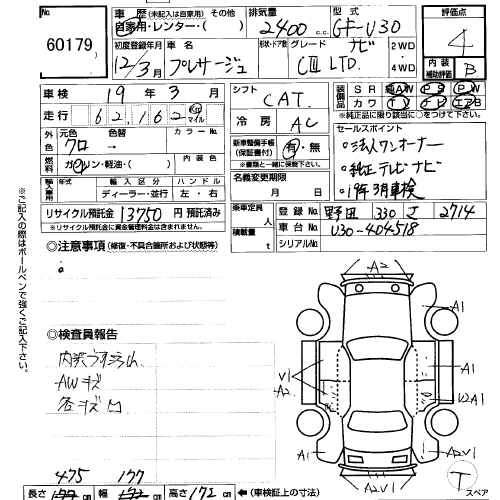 No. 60179
車歴 (未記入は自家用) その他
自家用・レンター・( )
排気量 2400 c.c.
型式 GF-U30
評価点 4
内装 補助評価 B
初度登録年月 12/3月
車名 プレサージュ
形状・ドア数
グレード ナビ
CⅡ LTD.
2WD
4WD
車検 19年 3月
シフト CAT.
装備品 SR 純AW PS PW
カワ TV ナビ エアB
※純正品に限り該当部に○をつけて下さい。
走行 62,162 km マイル
冷房 AC
セールスポイント
・法人ワンオーナー
・純正テレビナビ
・19年3月車検
外色 元色 クロ → 色替
カラーNo.
新車整備手帳 (保証書付) 有・無
※書類と一緒に保管下さい。
燃料 ガソリン・軽油・( )
内装色
名義変更期限 月 日
輸入車用 年式 輸入区分 ハンドル
ディーラー・並行 左・右
乗車定員 人
積載量 t
登録No. 野田 330 さ 2714
車台No. U30-404518
シリアルNo.
リサイクル預託金 13750 円 預託済み
※リサイクル預託金に資金管理料金は含まれません。
◎注意事項 (修復・不具合箇所および状態等)
※ご記入の際はボールペンで強くご記入下さい。
◎検査員報告
AWキズ
A2
A1
A1
V1
A2
V2A1
A1
A2V1
A2V1
T
スペア
475 177
長さ cm 幅 cm 高さ 172 cm
◎(車検証上の寸法)